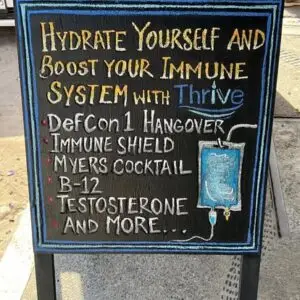 Hydrate Yourself and
Boost your Immune
System with Thrive
DefCon 1 Hangover
Immune Shield
Myers Cocktail
B-12
Testosterone
and More...